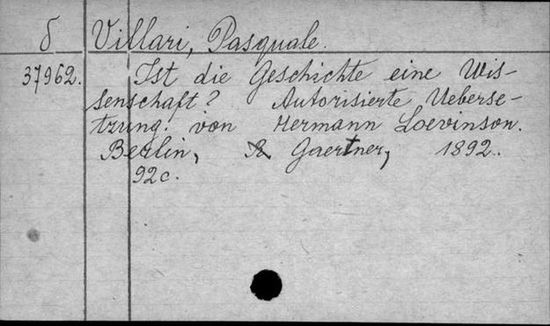 δ Villari, Pasquale.
37962. Ist die Geschichte eine Wis-
senschaft? Autorisierte Ueberse-
tzung. von Hermann Loevinson.
Berlin, R Gaertner, 1892.
92c.